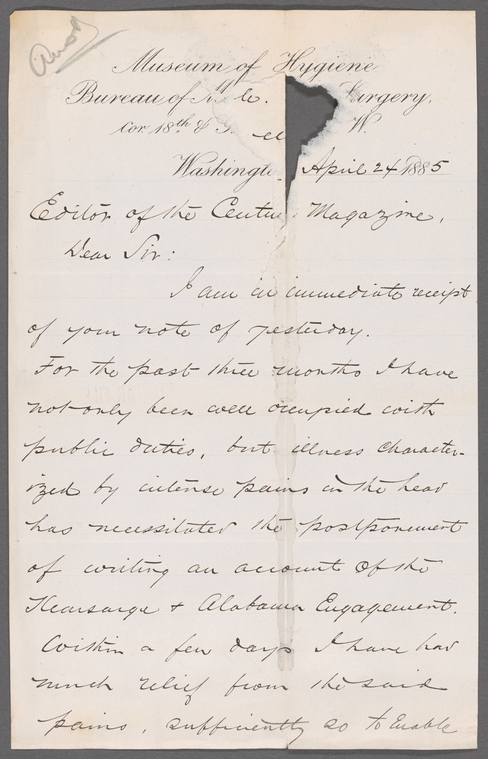 Ansd
Museum of Hygiene
Bureau of Surgery,
Cor. 18th & W.
Washingt April 24 1885
Editor of the Centu Magazine,
Dear Sir:
I am in immediate receipt
of your note of yesterday.
For the past three months I have
not only been well occupied with
public duties, but illness character-
ized by intense pains in the head
has necessitated the postponement
of writing an account of the
Kearsarge & Alabama Engagement.
Within a few days I have had
much relief from the said
pains, sufficiently so to Enable